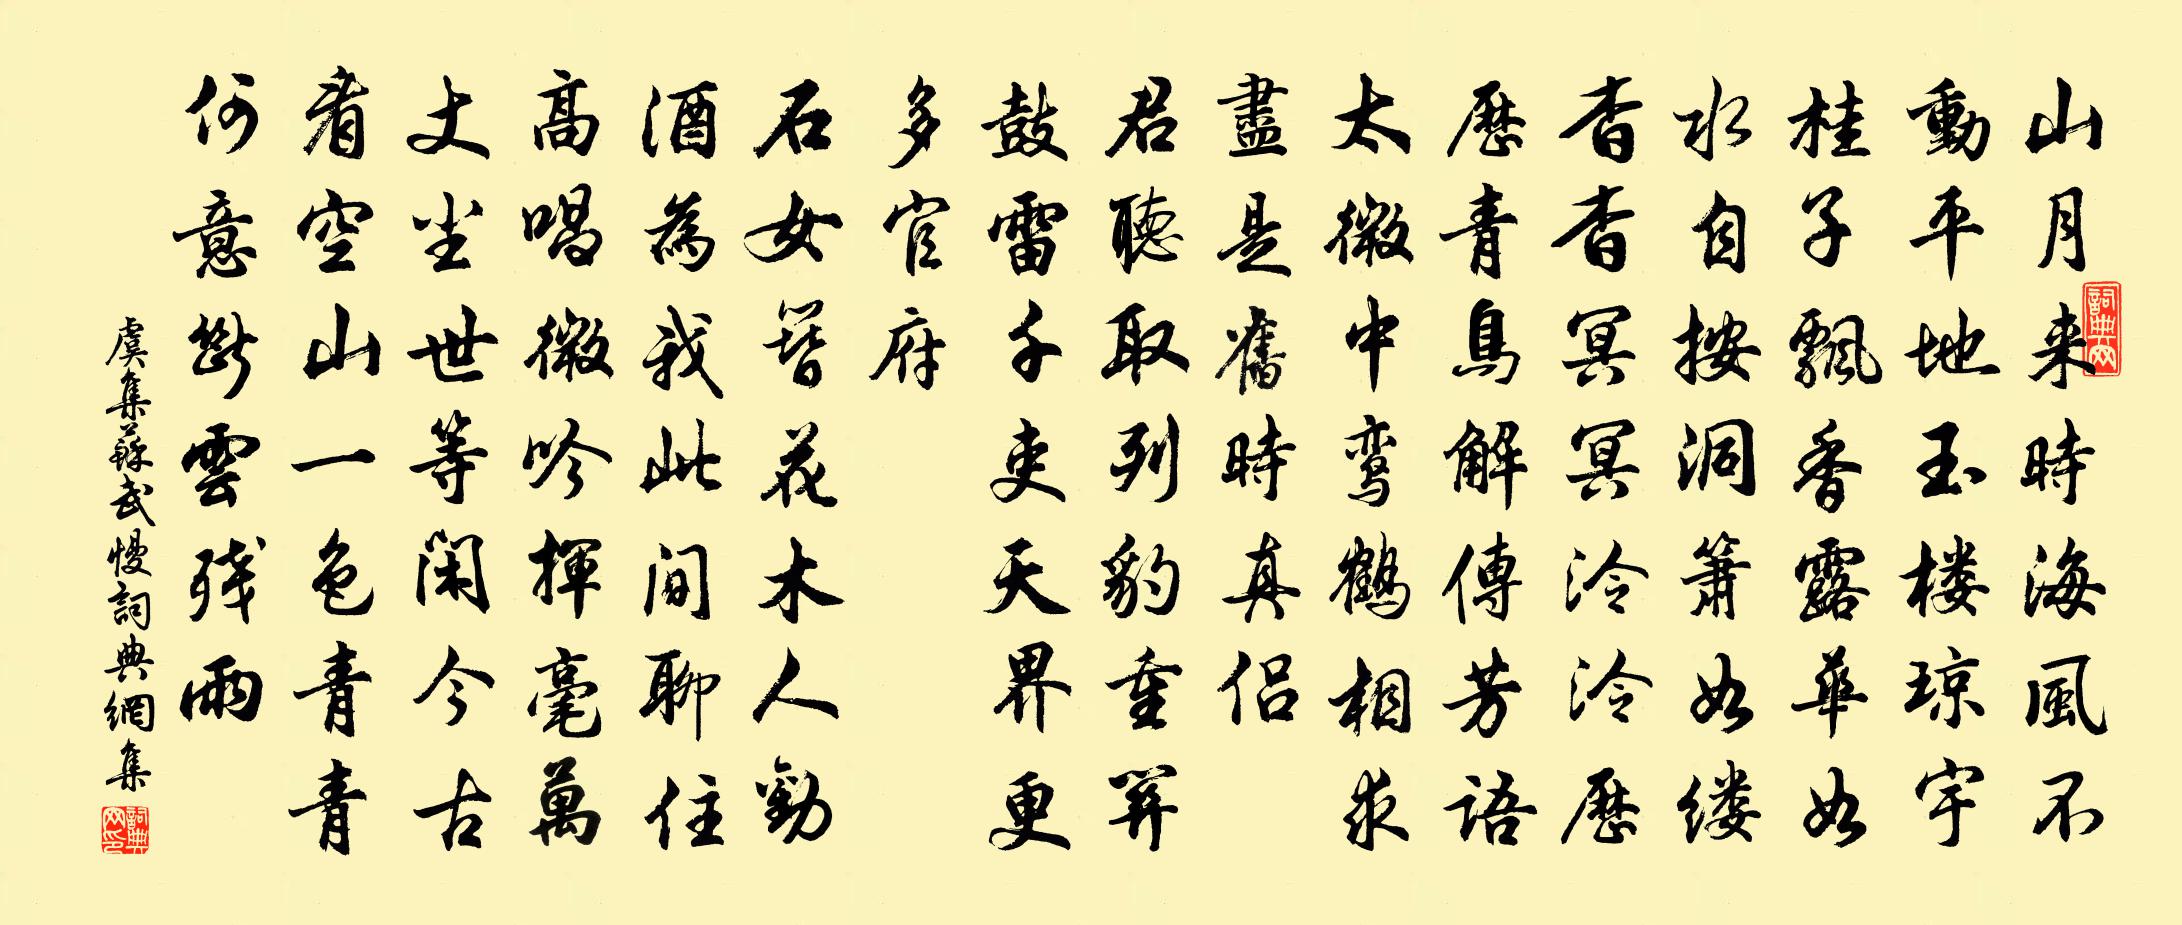 山月来時海風不
動平地玉楼琼宇
桂子飄香露華如
水自按洞箫如缕
杳杳冥冥泠泠歷
歷青鳥解傳芳語
太微中鸾鶴相求
盡是舊時真侣
君聽取列豹重関
鼓雷千吏天界更
多官府
石女簪花木人勸
酒為我此間聊住
高唱微吟揮毫萬
丈坐世等閑今古
看空山一色青青
何意斷雲残雨
虞集蘇武慢詞典網集
詞典网
詞典网印